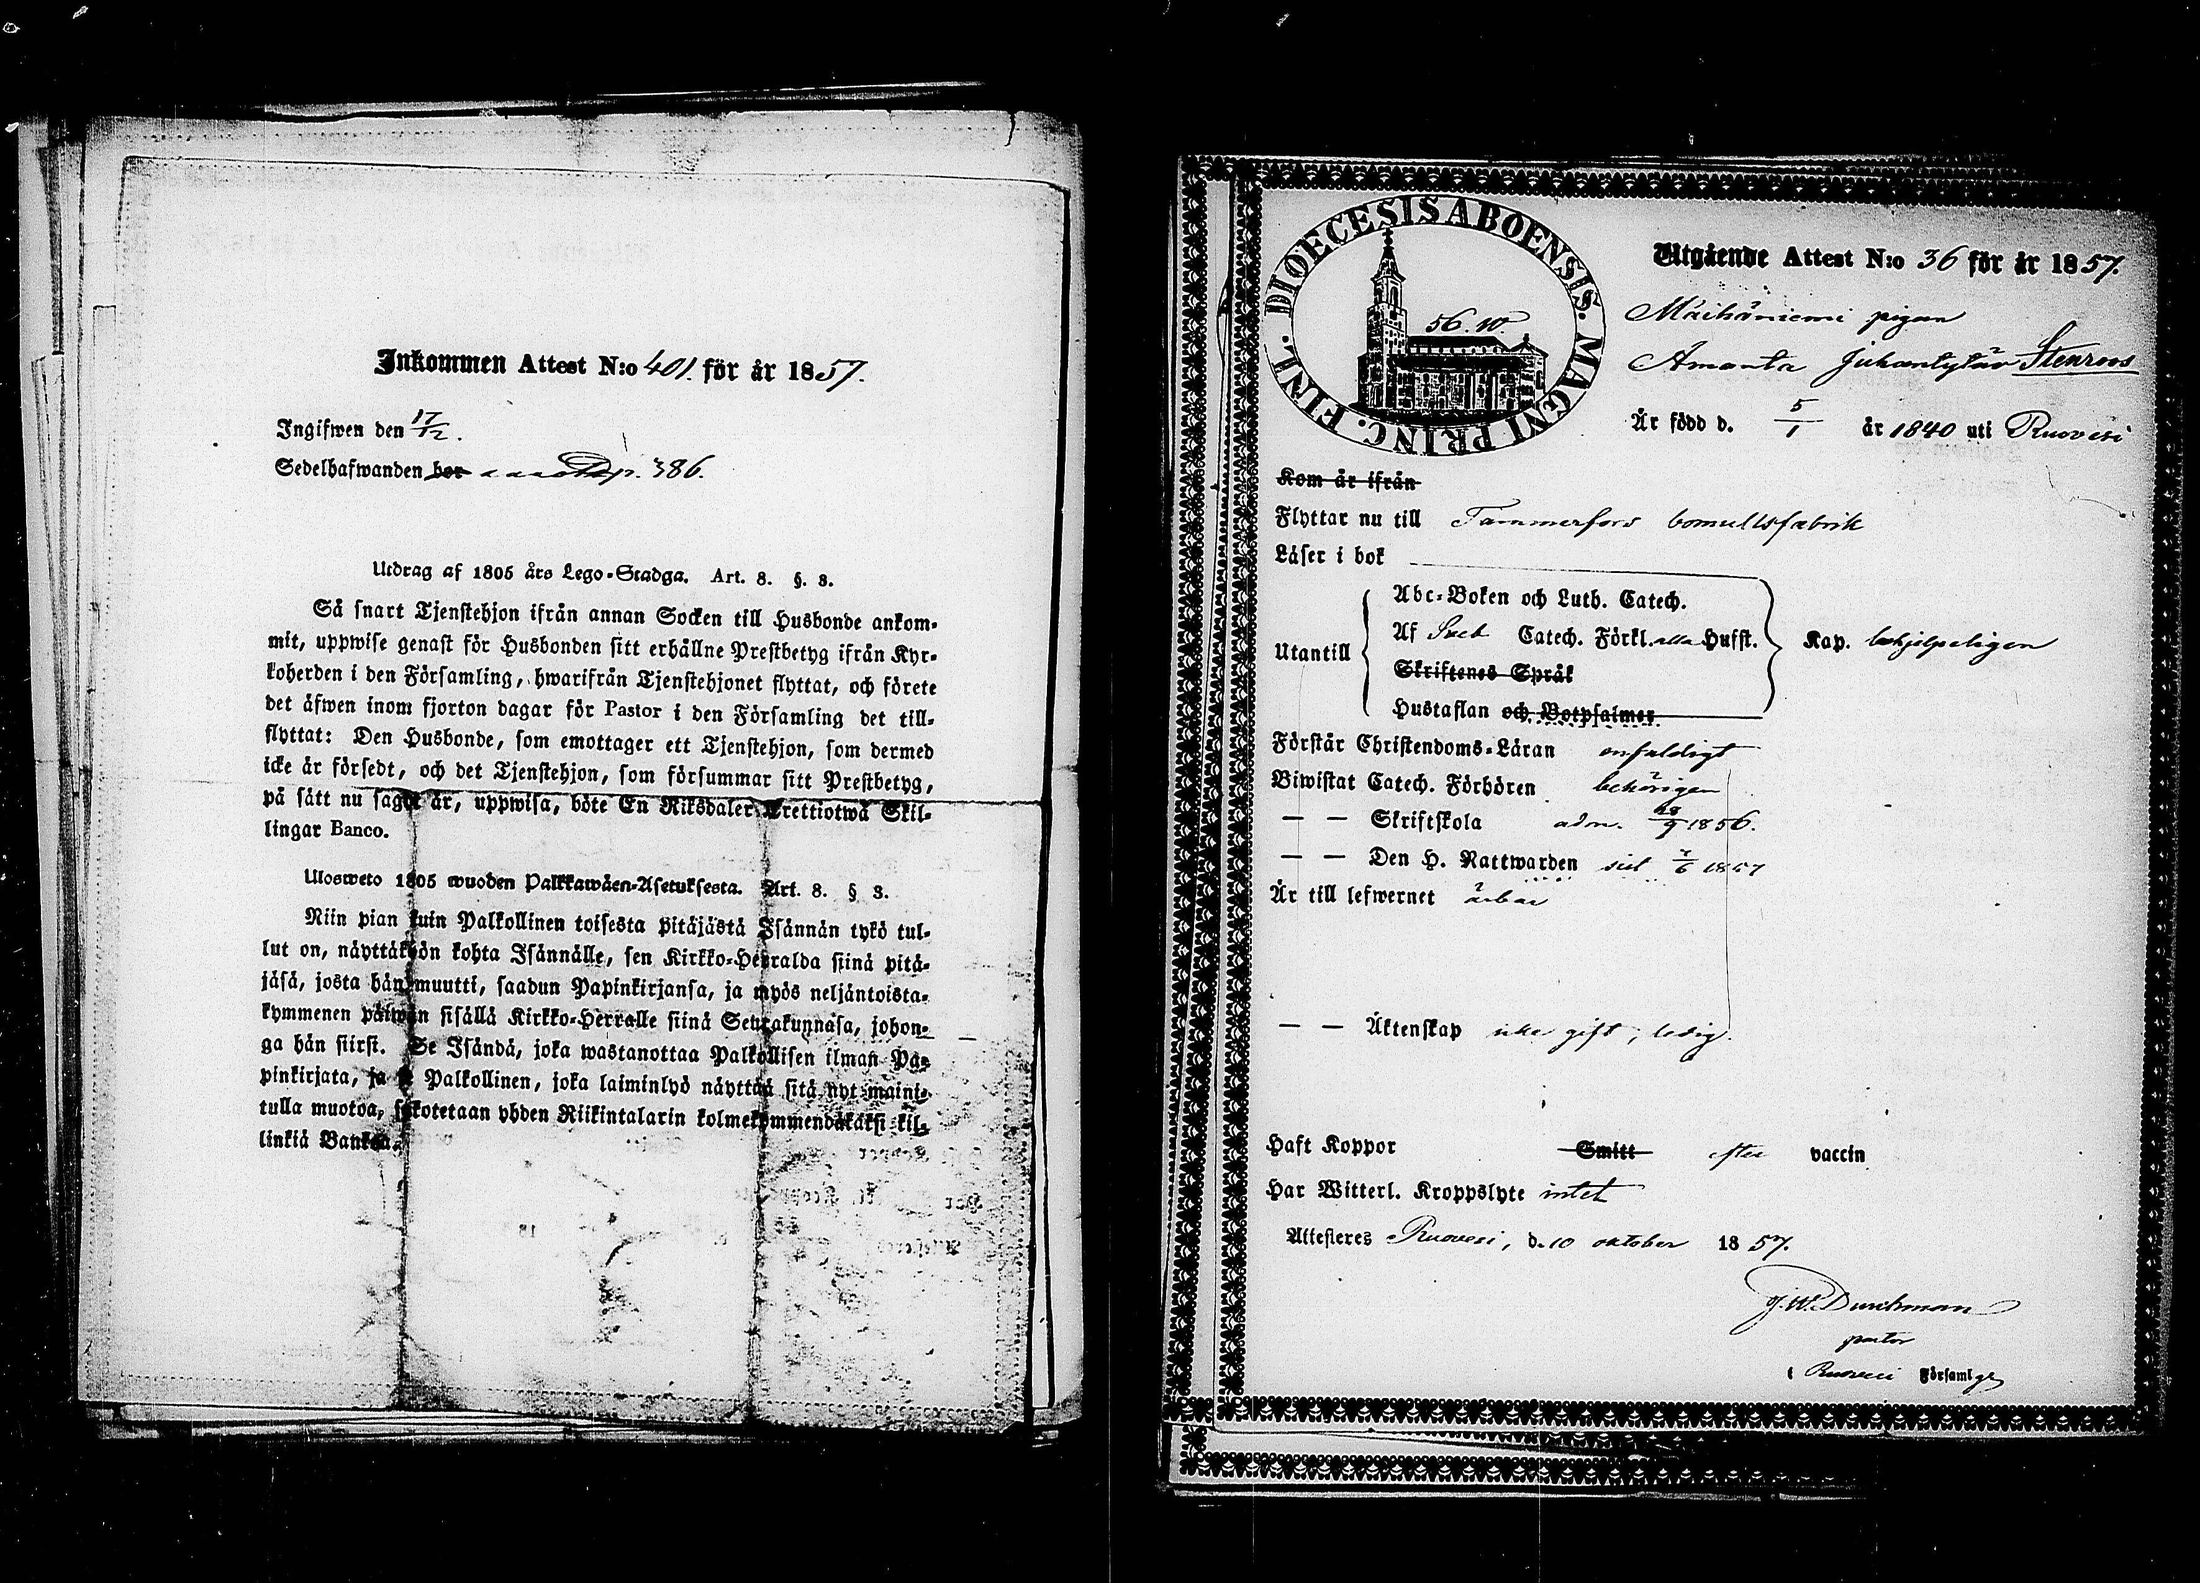 Inkommen Attest N:o 401. för år 1857.
Ingifwen den 17/12.
Sedelhafwanden bor p. 386.
Utdrag af 1805 års Lego-Stadga. Art. 8. §. 3.
Så snart Tjenstehjon ifrån annan Socken till Husbonde ankom-
mit, uppwise genast för Husbonden sitt erhållne Prestbetyg ifrån Kyr-
koherden i den Församling, hwarifrån Tjenstehjonet flyttat, och förete
det äfwen inom fjorton dagar för Pastor i den Församling det till-
flyttat: Den Husbonde, som emottager ett Tjenstehjon, som dermed
icke är försedt, och det Tjenstehjon, som försummar sitt Prestbetyg,
på sätt nu sagt är, uppwisa, böte En Riksdaler Trettiotwå Skil-
lingar Banco.
Ulosweto 1805 wuoden Palkkawäen-Asetuksesta. Art. 8. § 3.
Niin pian kuin Palkollinen toisesta pitäjästä Isännän tykö tul-
lut on, näyttäköön kohta Isännälle, sen Kirkko-Herralda siinä pitä-
jäsä, josta hän muutti, saadun Papinkirjansa, ja myös neljäntoista-
kymmenen päiwän sisällä Kirkko-Herralle siinä Seurakunnasa, johon-
ga hän siirsi. Se Isändä, joka wastanottaa Palkollisen ilman Pa-
pinkirjata, ja se Palkollinen, joka laiminlyö näyttää sitä nyt maini-
tulla muotoa, sakotetaan yhden Riikintalarin kolmekymmendäkaksi kil-
linkiä Bankoa.
DIOECESIS ABOENSIS. MAGNI PRINC. FINL.
56. 10.
Utgående Attest N:o 36 för år 1857.
Maihäniemi pigan
Amanta Juhantytär Stenroos
Är född d. 5/1 år 1840 uti Ruovesi
Kom år ifrån
Flyttar nu till Tammerfors bomullsfabrik
Läser i bok
Utantill
Abc-Boken och Luth. Catech.
Af Sveb Catech. Förkl. alla Hufst. Kap. behjelpeligen
Skriftenes Språk
Hustaflan och Botpsalmer
Förstår Christendoms-Läran enfaldigt
Biwistat Catech. Förhören behörigen
— — Skriftskola adm. 1856.
— — Den H. Nattwarden sist 1857
Är till lefwernet ärbar
— — Äktenskap icke gift, ledig.
Haft Koppor Smitt efter vaccin
Har Witterl. Kroppslyte intet
Attesteres Ruovesi, d. 10 oktober 1857.
J. W. Durchman
pastor
i Ruovesi Församlg